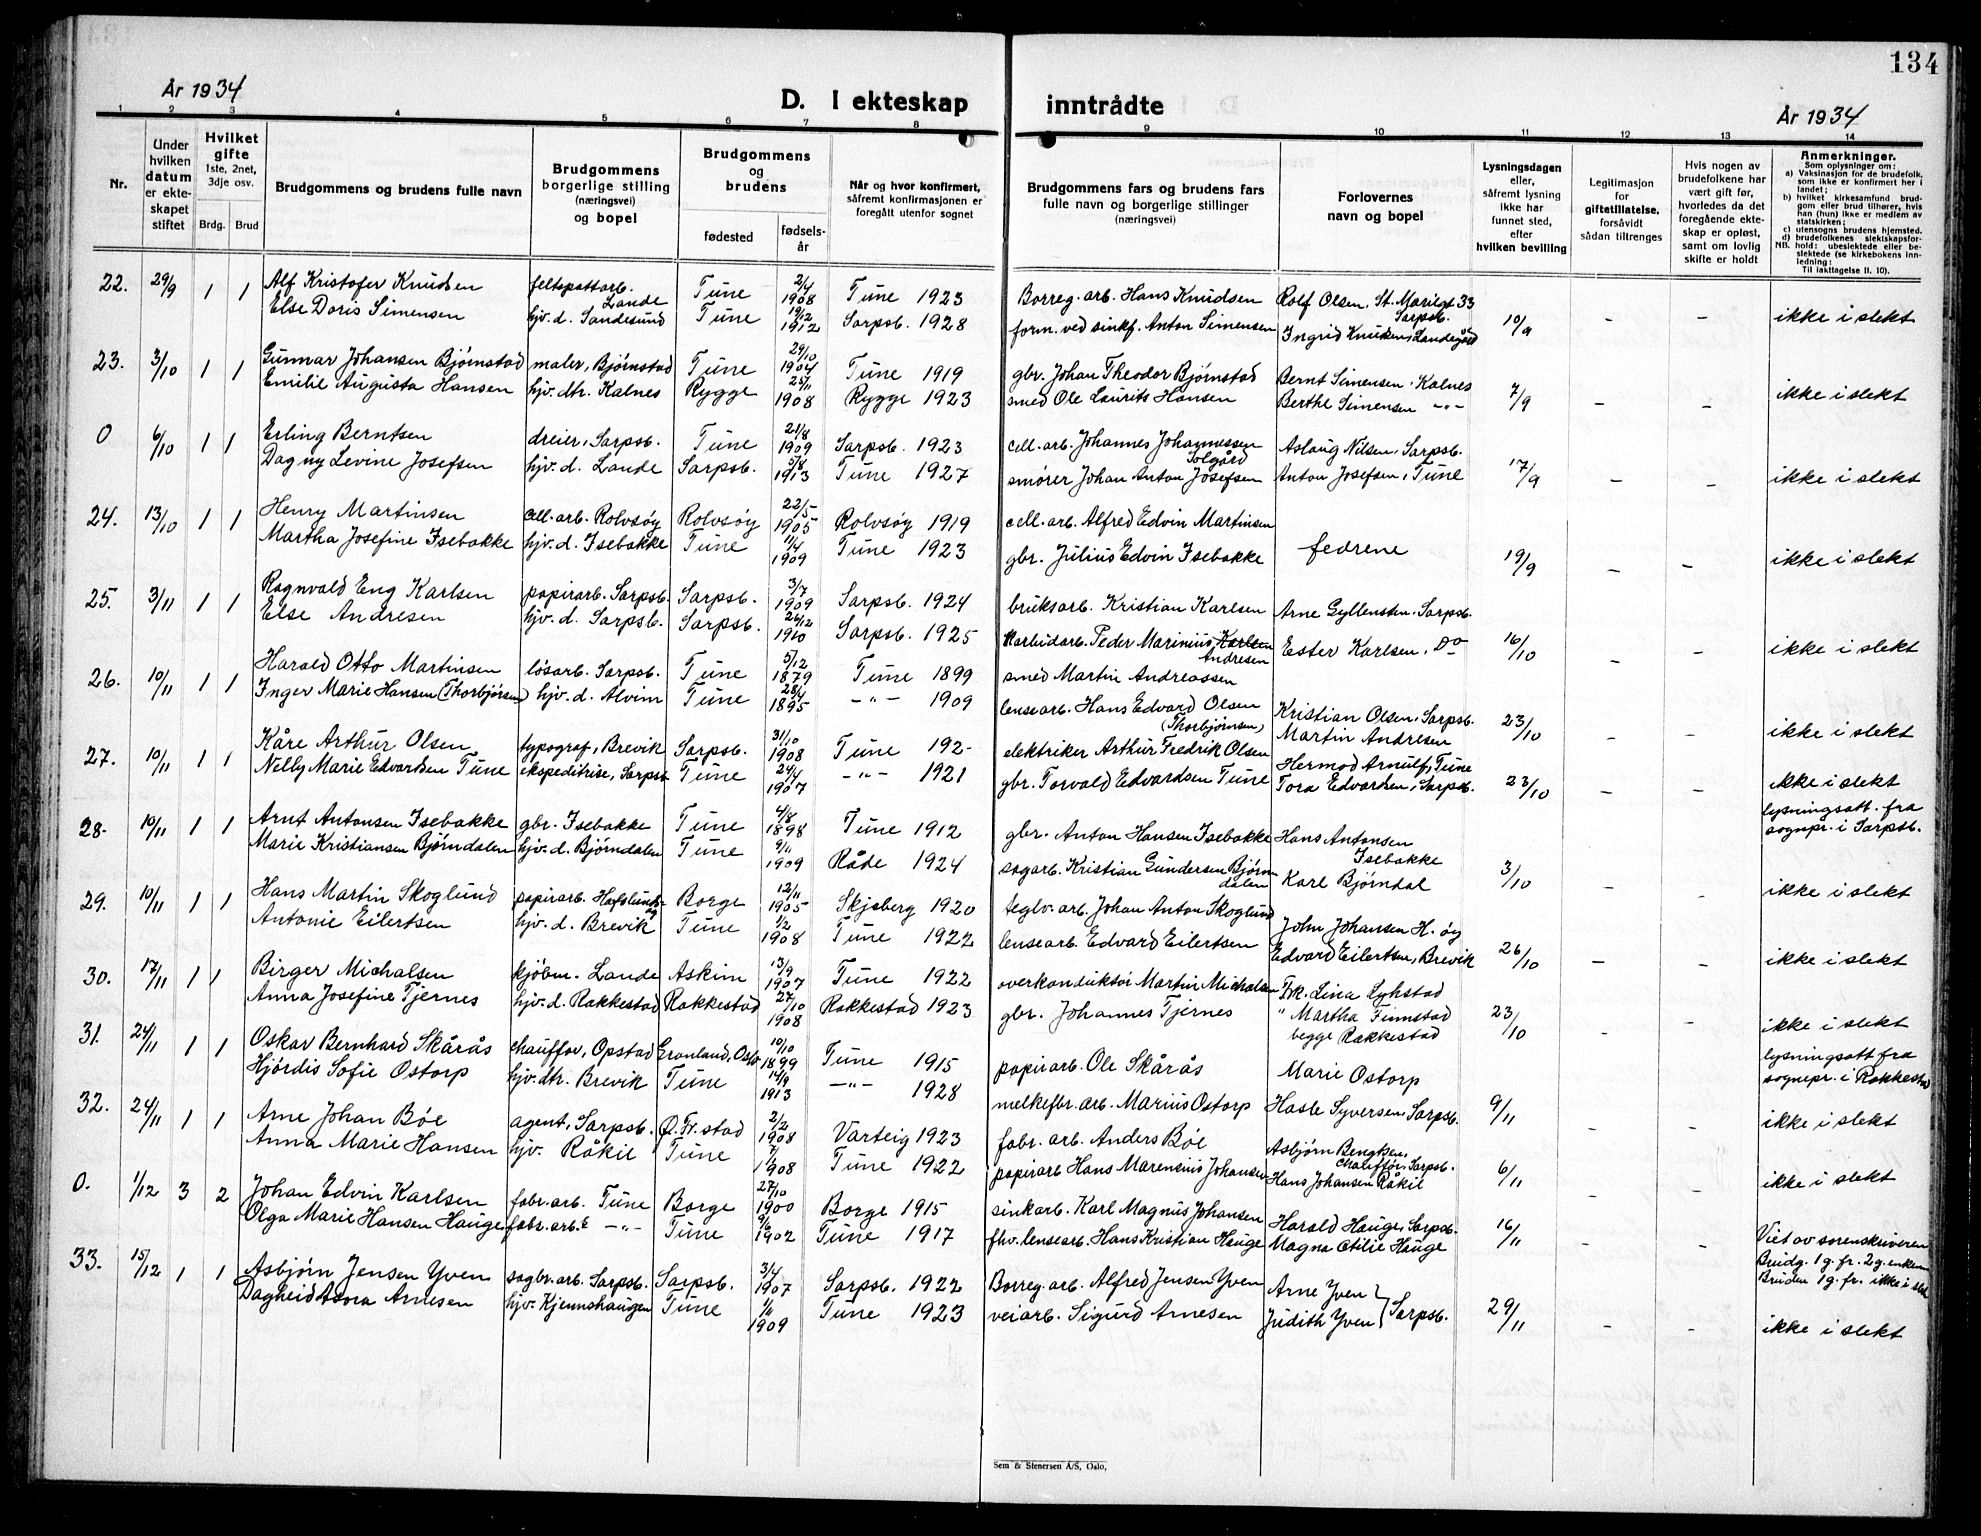 134
År 1934
D. I ekteskap inntrådte
År 1934
1 2 3 4 5 6 7 8 9 10 11 12 13 14
Nr.
Under hvilken datum er ekteskapet stiftet
Hvilket gifte 1ste, 2net, 3dje osv.
Brdg. Brud
Brudgommens og brudens fulle navn
Brudgommens borgerlige stilling (næringsvei) og bopel
Brudgommens og brudens
fødested
fødselsår
Når og hvor konfirmert, såfremt konfirmasjonen er foregått utenfor sognet
Brudgommens fars og brudens fars fulle navn og borgerlige stillinger (næringsvei)
Forlovernes navn og bopel
Lysningsdagen eller, såfremt lysning ikke har funnet sted, efter hvilken bevilling
Legitimasjon for giftetillatelse, forsåvidt sådan tiltrenges
Hvis nogen av brudefolkene har vært gift før, hvorledes da det foregående ekteskap er opløst, samt om lovlig skifte er holdt
Anmerkninger.
Som oplysninger om:
a) Vaksinasjon for de brudefolk, som ikke er konfirmert her i landet;
b) hvilket kirkesamfund brudgom eller brud tilhører, hvis han (hun) ikke er medlem av statskirken;
c) utensogns brudens hjemsted.
d) brudefolkenes slektskapsforhold: ubeslektede eller beslektede (se kirkebokens innledning:
NB.
Til iakttagelse II. 10).
22. 29/9 1 1 Alf Kristofer Knudsen feltspattarb. Lande Tune 2/4 1908 Tune 1923 Borreg. arb. Hans Knudsen Rolf Olsen, St. Mariegt 33 Sarpsb. 10/9 - - ikke i slekt
Else Doris Simensen hjv. d. Sandesund Tune 19/12 1912 Sarpsb. 1928 form. ved sinkf. Anton Simensen Ingrid Knudsen, Landegård
23. 3/10 1 1 Gunnar Johansen Bjørnstad maler, Bjørnstad Tune 29/10 1904 Tune 1919 gbr. Johan Theodor Bjørnstad Bernt Simensen, Kalnes 7/9 - - ikke i slekt
Emilie Augusta Hansen hjv. dtr. Kalnes Rygge 25/11 1908 Rygge 1923 smed Ole Laurits Hansen Berthe Simensen -"-
0 6/10 1 1 Erling Berntsen dreier, Sarpsb. Tune 21/8 1909 Sarpsb. 1923 cell. arb. Johannes Johannessen Solgård Aslaug Nilsen, Sarpsb. 17/9 - - ikke i slekt
Dagny Levine Josefsen hjv. d. Lande Sarpsb. 5/8 1913 Tune 1927 smører Johan Anton Josefsen Anton Josefsen, Tune
24. 13/10 1 1 Henry Martinsen cell. arb. Rolvsøy Rolvsøy 22/5 1905 Rolvsøy 1919 cell. arb. Alfred Edvin Martinsen fedrene 19/9 - - ikke i slekt
Martha Josefine Isebakke hjv. d. Isebakke Tune 11/4 1909 Tune 1923 gbr. Julius Edvin Isebakke
25. 3/11 1 1 Ragnvald Eng Karlsen papirarb. Sarpsb. Sarpsb. 3/7 1909 Sarpsb. 1924 bruksarb. Kristian Karlsen Arne Gyllensten, Sarpsb. 16/10 - - ikke i slekt
Else Andresen hjv. d. Sarpsb. Sarpsb. 26/12 1910 Sarpsb. 1925 Karbidarb. Peder Marinius Karlsen Andresen Ester Karlsen, Do
26. 10/11 1 1 Harald Otto Martinsen løsarb. Sarpsb. Tune 5/12 1879 Tune 1899 smed Martin Andreassen Kristian Olsen, Sarpsb. 23/10 - - ikke i slekt
Inger Marie Hansen (Thorbjørnsen) hjv. d. Alvim Tune 28/4 1895 -"- 1909 lensearb. Hans Edvard Olsen (Thorbjørnsen) Martin Andresen
27. 10/11 1 1 Kåre Arthur Olsen typograf, Brevik Sarpsb. 31/10 1908 Tune 192- elektriker Arthur Fredrik Olsen Hermod Arnulf, Tune 23/10 - - ikke i slekt
Nelly Marie Edvardsen Tune ekspeditrise, Sarpsb Tune 24/4 1907 -"- 1921 gbr. Torvald Edvardsen Tune Tora Edvardsen, Sarpsb. lysningsatt. fra sognepr. i Sarpsb.
28. 10/11 1 1 Arnt Antonsen Isebakke gbr. Isebakke Tune 4/8 1898 Tune 1912 gbr. Anton Hansen Isebakke Hans Antonsen Isebakke 3/10 - - ikke i slekt
Marie Kristiansen Bjørndalen hjv. d. Bjørndalen Tune 9/11 1909 Råde 1924 sagarb. Kristian Gundersen Bjørndalen Karl Bjørndal
29. 10/11 1 1 Hans Martin Skoglund papirarb. Hafslundsøy Borge 12/11 1905 Skjeberg 1920 teglv. arb. Johan Anton Skoglund John Johansen H. øy 26/10 - - ikke i slekt
Antonie Eilertsen hjv. d. Brevik Tune 1/2 1908 Tune 1922 lensearb. Edvard Eilertsen Edvard Eilertsen, Brevik
30. 17/11 1 1 Birger Michalsen kjøbm. Lande Askim 13/9 1907 Tune 1922 overkonduktør Martin Michalsen Frk. Lina Lyhstad 23/10 - - ikke i slekt
Anna Josefine Tjernes hjv. d. Rakkestad Rakkestad 27/10 1908 Rakkestad 1923 gbr. Johannes Tjernes " Martha Finnstad begge Rakkestad lysningsatt fra sognepr. i Rakkestad
31. 24/11 1 1 Oskar Bernhard Skårås chauffør, Opstad Grønland, Oslo 10/10 1899 Tune 1915 papirarb. Ole Skårås Marie Ostorp 9/11 - - ikke i slekt
Hjørdis Sofie Ostorp hjv. dtr. Brevik Tune 14/9 1913 -"- 1928 melkefbr. arb. Marius Ostorp Hasle Syversen, Sarpsb.
32. 24/11 1 1 Arne Johan Bøe agent, Sarpsb. Ø. Fr.stad 2/2 1908 Varteig 1923 fabr. arb. Anders Bøe Asbjørn Bengtsen, Chauffør, Sarpsb. 6/11 - - ikke i slekt
Anna Marie Hansen hjv. Råkil Tune 1908 Tune 1922 papirarb Hans Marensius Johansen Hans Johansen Råkil
0. 1/12 3 2 Johan Edvin Karlsen fabr. arb. Tune Borge 27/10 1900 Borge 1915 sinkarb. Karl Magnus Johansen Harald Hauge, Sarpsb. 16/11 - - Viet av sorenskriveren
Olga Marie Hansen Hauge fabr. arb.e -"- Tune 9/6 1902 Tune 1917 fhv. lensearb. Hans Kristian Hauge Magna Otilie Hauge Brudg. 1 g. fr. 2 g. enkem Bruden 1 g. fr. ikke i slekt
33. 15/12 1 1 Asbjørn Jensen Yven sagbr. arb. Sarpsb. Sarpsb. 3/4 1907 Sarpsb. 1922 Borreg. arb. Alfred Jensen Yven Arne Yven } Sarpsb. 29/11 - - ikke i slekt
Dagheid Asora Arnesen hjv. Kjennshaugen Tune 1/11 1909 Tune 1923 veiarb. Sigurd Arnesen Judith Yven
Sem & Stenersen A/S, Oslo,